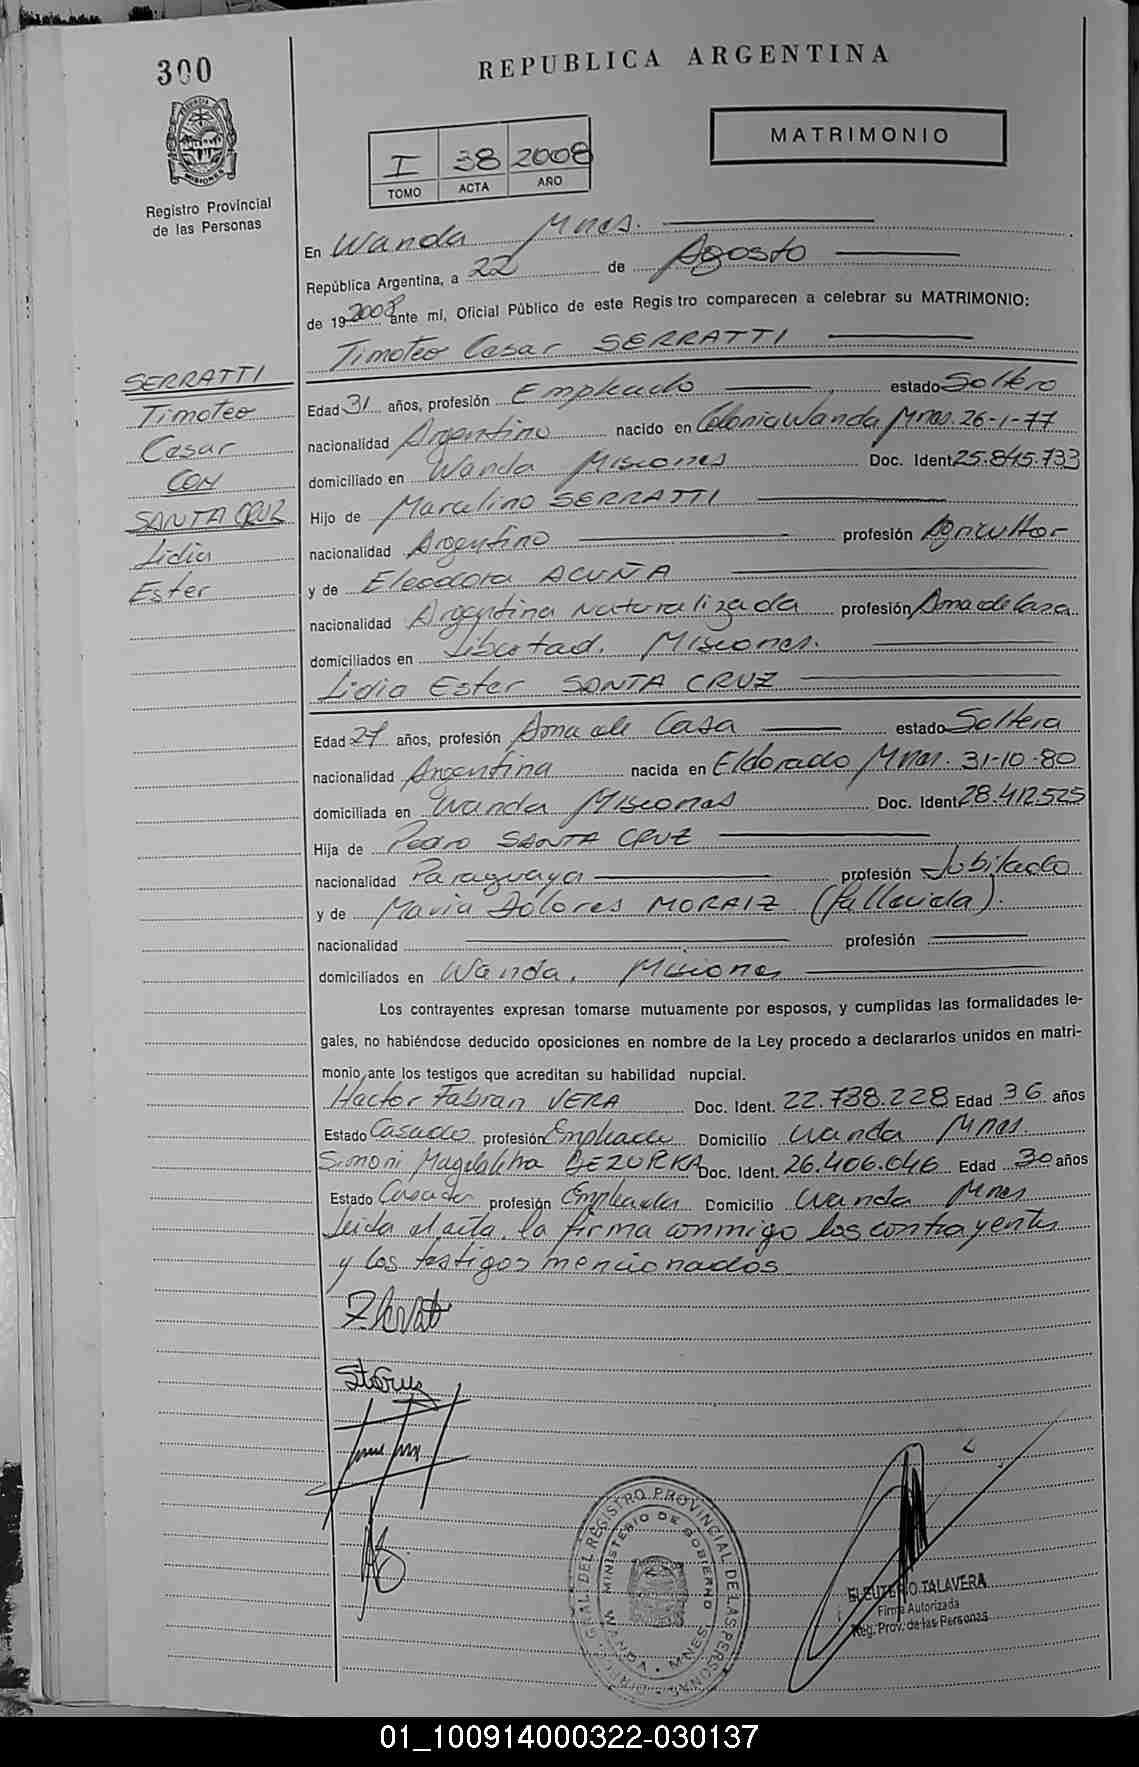 300
REPUBLICA ARGENTINA
MATRIMONIO
I 38 2008
TOMO ACTA AÑO
Registro Provincial
de las Personas
En Wanda Mnes.
República Argentina, a 22 de Agosto
de 19 2008 ante mí, Oficial Público de este Registro comparecen a celebrar su MATRIMONIO:
Timoteo Cesar SERRATTI
SERRATTI
Timoteo
Cesar
CON
SANTA CRUZ
Lidia
Ester
Edad 31 años, profesión Empleado estado Soltero
nacionalidad Argentino nacido en Colonia Wanda Mnes. 26-1-77
domiciliado en Wanda Misiones Doc. Ident. 25.845.733
Hijo de Marcelino SERRATTI
nacionalidad Argentino profesión Agricultor
y de Eleodora ACUÑA
nacionalidad Argentina Naturalizada profesión Ama de Casa
domiciliados en Libertad. Misiones.
Lidia Ester SANTA CRUZ
Edad 27 años, profesión Ama de Casa estado Soltera
nacionalidad Argentina nacida en Eldorado Mnes. 31-10-80
domiciliada en Wanda Misiones Doc. Ident. 28.412.525
Hija de Pedro SANTA CRUZ
nacionalidad Paraguaya profesión Jubilado
y de Maria Dolores MORAIZ (fallecida).
nacionalidad profesión
domiciliados en Wanda. Misiones
Los contrayentes expresan tomarse mutuamente por esposos, y cumplidas las formalidades le-
gales, no habiéndose deducido oposiciones en nombre de la Ley procedo a declararlos unidos en matri-
monio ante los testigos que acreditan su habilidad nupcial.
Hactor Fabian VERA Doc. Ident. 22.738.228 Edad 36 años
Estado Casado profesión Empleado Domicilio Wanda Mnes.
Simoni Magdalena BEZURKA Doc. Ident. 26.406.046 Edad 30 años
Estado Casada profesión Empleada Domicilio Wanda Mnes
Leida el acta, la firma conmigo los contrayentes
y los testigos mencionados
DIR. GRAL. DEL REGISTRO PROVINCIAL DE LAS PERSONAS
MINISTERIO DE GOBIERNO
WANDA - MNES.
ELEUTERIO TALAVERA
Firma Autorizada
Reg. Prov. de las Personas
01_100914000322-030137